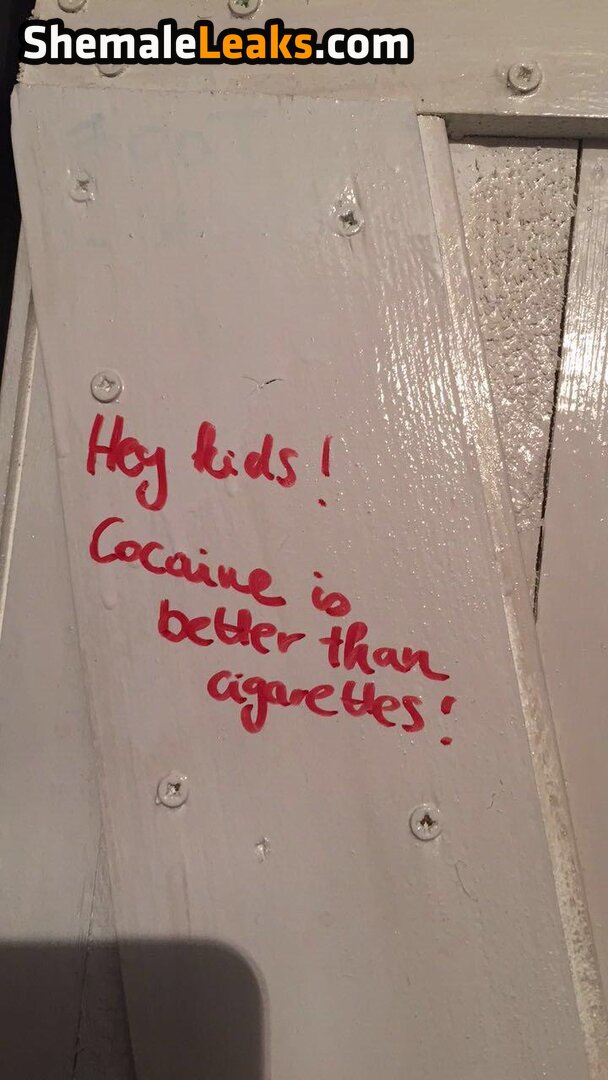 ShemaleLeaks.com
Hey kids!
Cocaine is
better than
cigarettes!